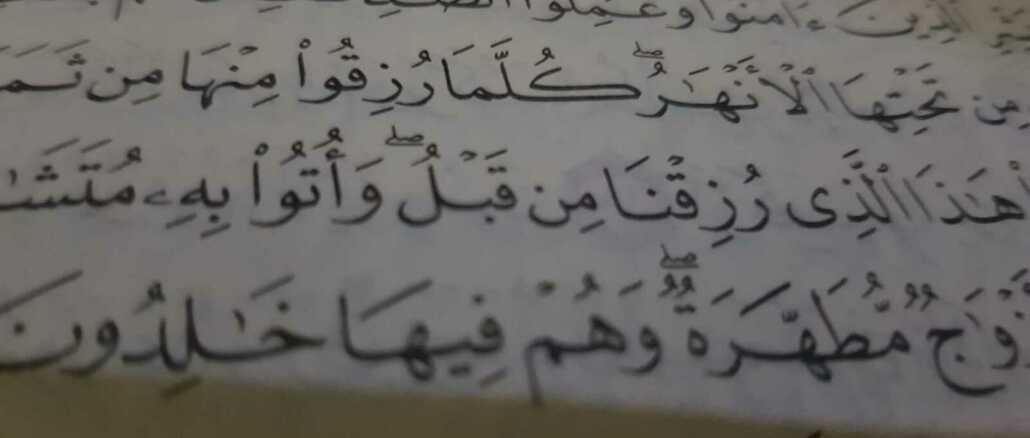 ٱلَّذِينَ ءَامَنُوا۟ وَعَمِلُوا۟
مِن تَحْتِهَا ٱلْأَنْهَـٰرُ ۖ كُلَّمَا رُزِقُوا۟ مِنْهَا مِن ثَمَ
هَـٰذَا ٱلَّذِى رُزِقْنَا مِن قَبْلُ ۖ وَأُتُوا۟ بِهِۦ مُتَشَـٰ
زْوَٰجٌ مُّطَهَّرَةٌ ۖ وَهُمْ فِيهَا خَـٰلِدُونَ